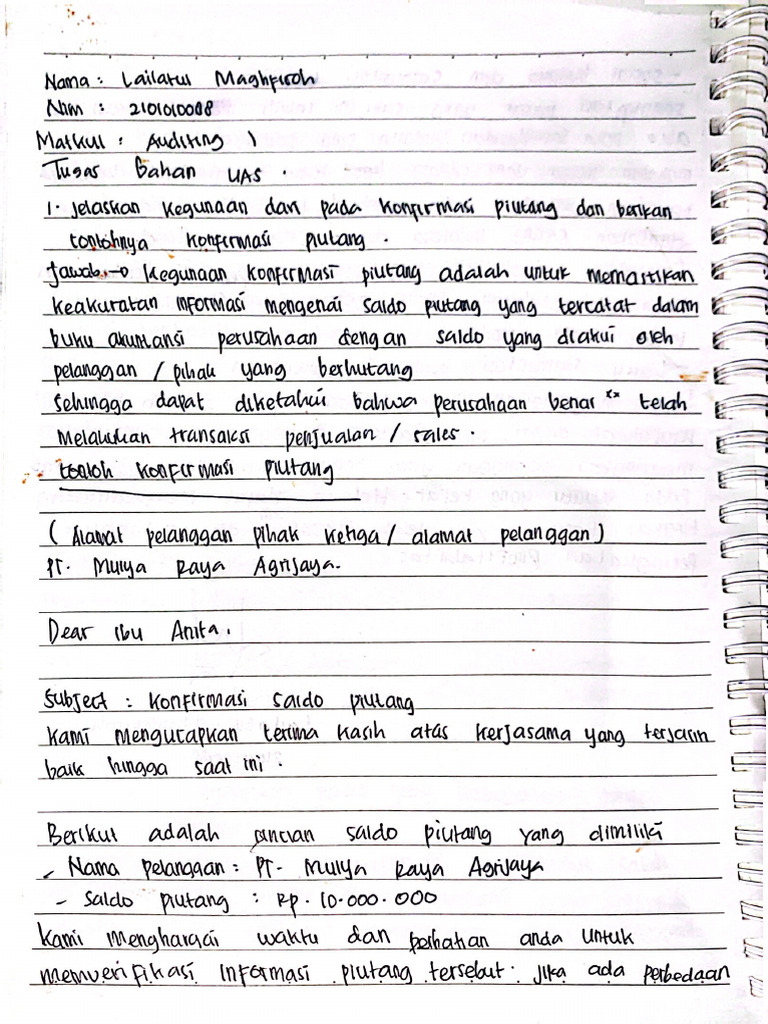 Nama : Lailatul Maghfiroh
Nim : 2101010008
Matkul : Auditing 1
Tugas Bahan UAS .
1. Jelaskan kegunaan dari pada konfirmasi piutang dan berikan
contohnya konfirmasi piutang .
Jawab → kegunaan konfirmasi piutang adalah untuk memastikan
keakuratan informasi mengenai saldo piutang yang tercatat dalam
buku akuntansi perusahaan dengan saldo yang diakui oleh
pelanggan / pihak yang berhutang
Sehingga dapat diketahui bahwa perusahaan benar ** telah
melakukan transaksi penjualan / sales .
contoh konfirmasi piutang
( Alamat pelanggan pihak ketiga / alamat pelanggan )
PT. Mulya Raya Agrijaya.
Dear ibu Anita .
Subject : Konfirmasi saldo piutang
Kami mengucapkan terima kasih atas kerjasama yang terjalin
baik hingga saat ini .
Berikut adalah rincian saldo piutang yang dimiliki
- Nama pelanggan : PT. Mulya Raya Agrijaya
- Saldo piutang : Rp. 10.000.000
Kami menghargai waktu dan perhatian anda untuk
memverifikasi informasi piutang tersebut . jika ada perbedaan